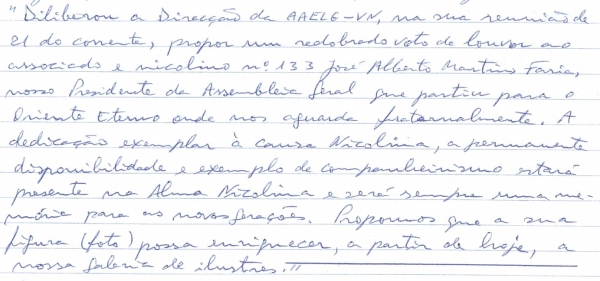 "Diliberou a Direcção da AAELG-VN, na sua reunião de
21 do corrente, propor um redobrado voto de louvor ao
associado e nicolino nº 133 José Alberto Martins Faria,
nosso Presidente da Assembleia Geral que partiu para o
Oriente Eterno onde nos aguarda fraternalmente. A
dedicação exemplar à causa Nicolina, a permanente
disponibilidade e exemplo de companheirismo estará
presente na Alma Nicolina e será sempre uma me-
mória para as novas gerações. Propomos que a sua
figura (foto) possa enriquecer, a partir de hoje, a
nossa galeria de ilustres."